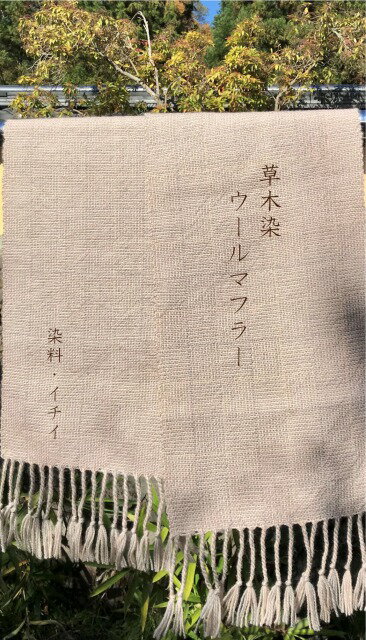 草木染
ウールマフラー
染料・イチイ